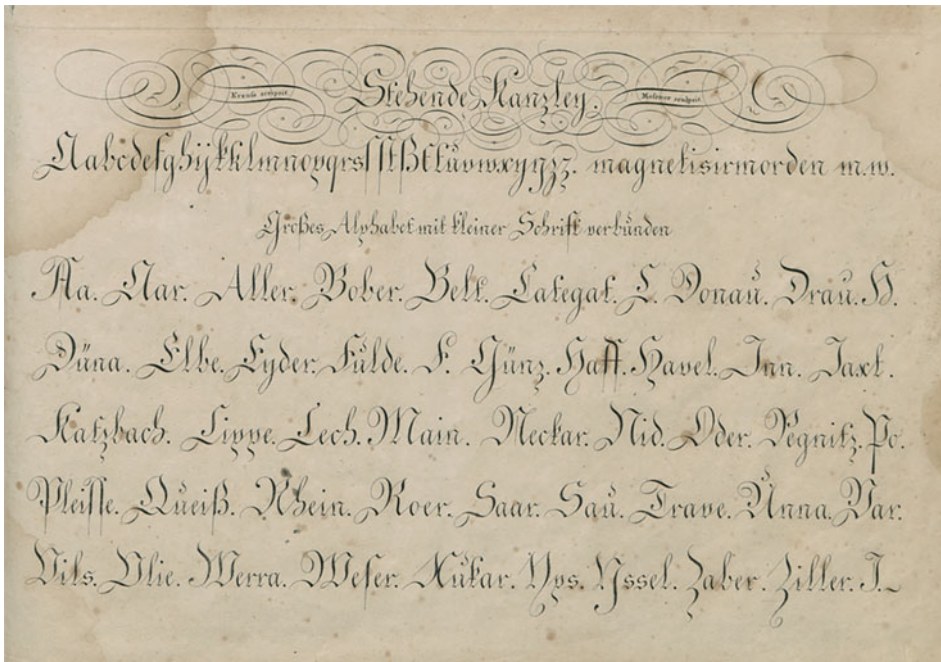 Stehende Kanzley.
Krause scripsit. Meissner sculpsit.
Aabcdefghijkklmnopqrsſſſtßtťuvwxyyzz. magnetisirmorden m.w.
Großes Alphabet mit kleiner Schrift verbunden
Aa. Aar. Aller. Bober. Belt. Categat. C. Donau. Drau. D.
Düna. Elbe. Eyder. Fulde. F. Günz. Haff. Havel. Inn. Jaxt.
Katzbach. Lippe. Lech. Main. Neckar. Nid. Oder. Pegnitz. Po.
Pleiſſe. Queiß. Rhein. Roer. Saar. Sau. Trave. Unna. Var.
Vils. Vlie. Werra. Weſer. Xukar. Yps. Yssel. Zaber. Ziller. J.